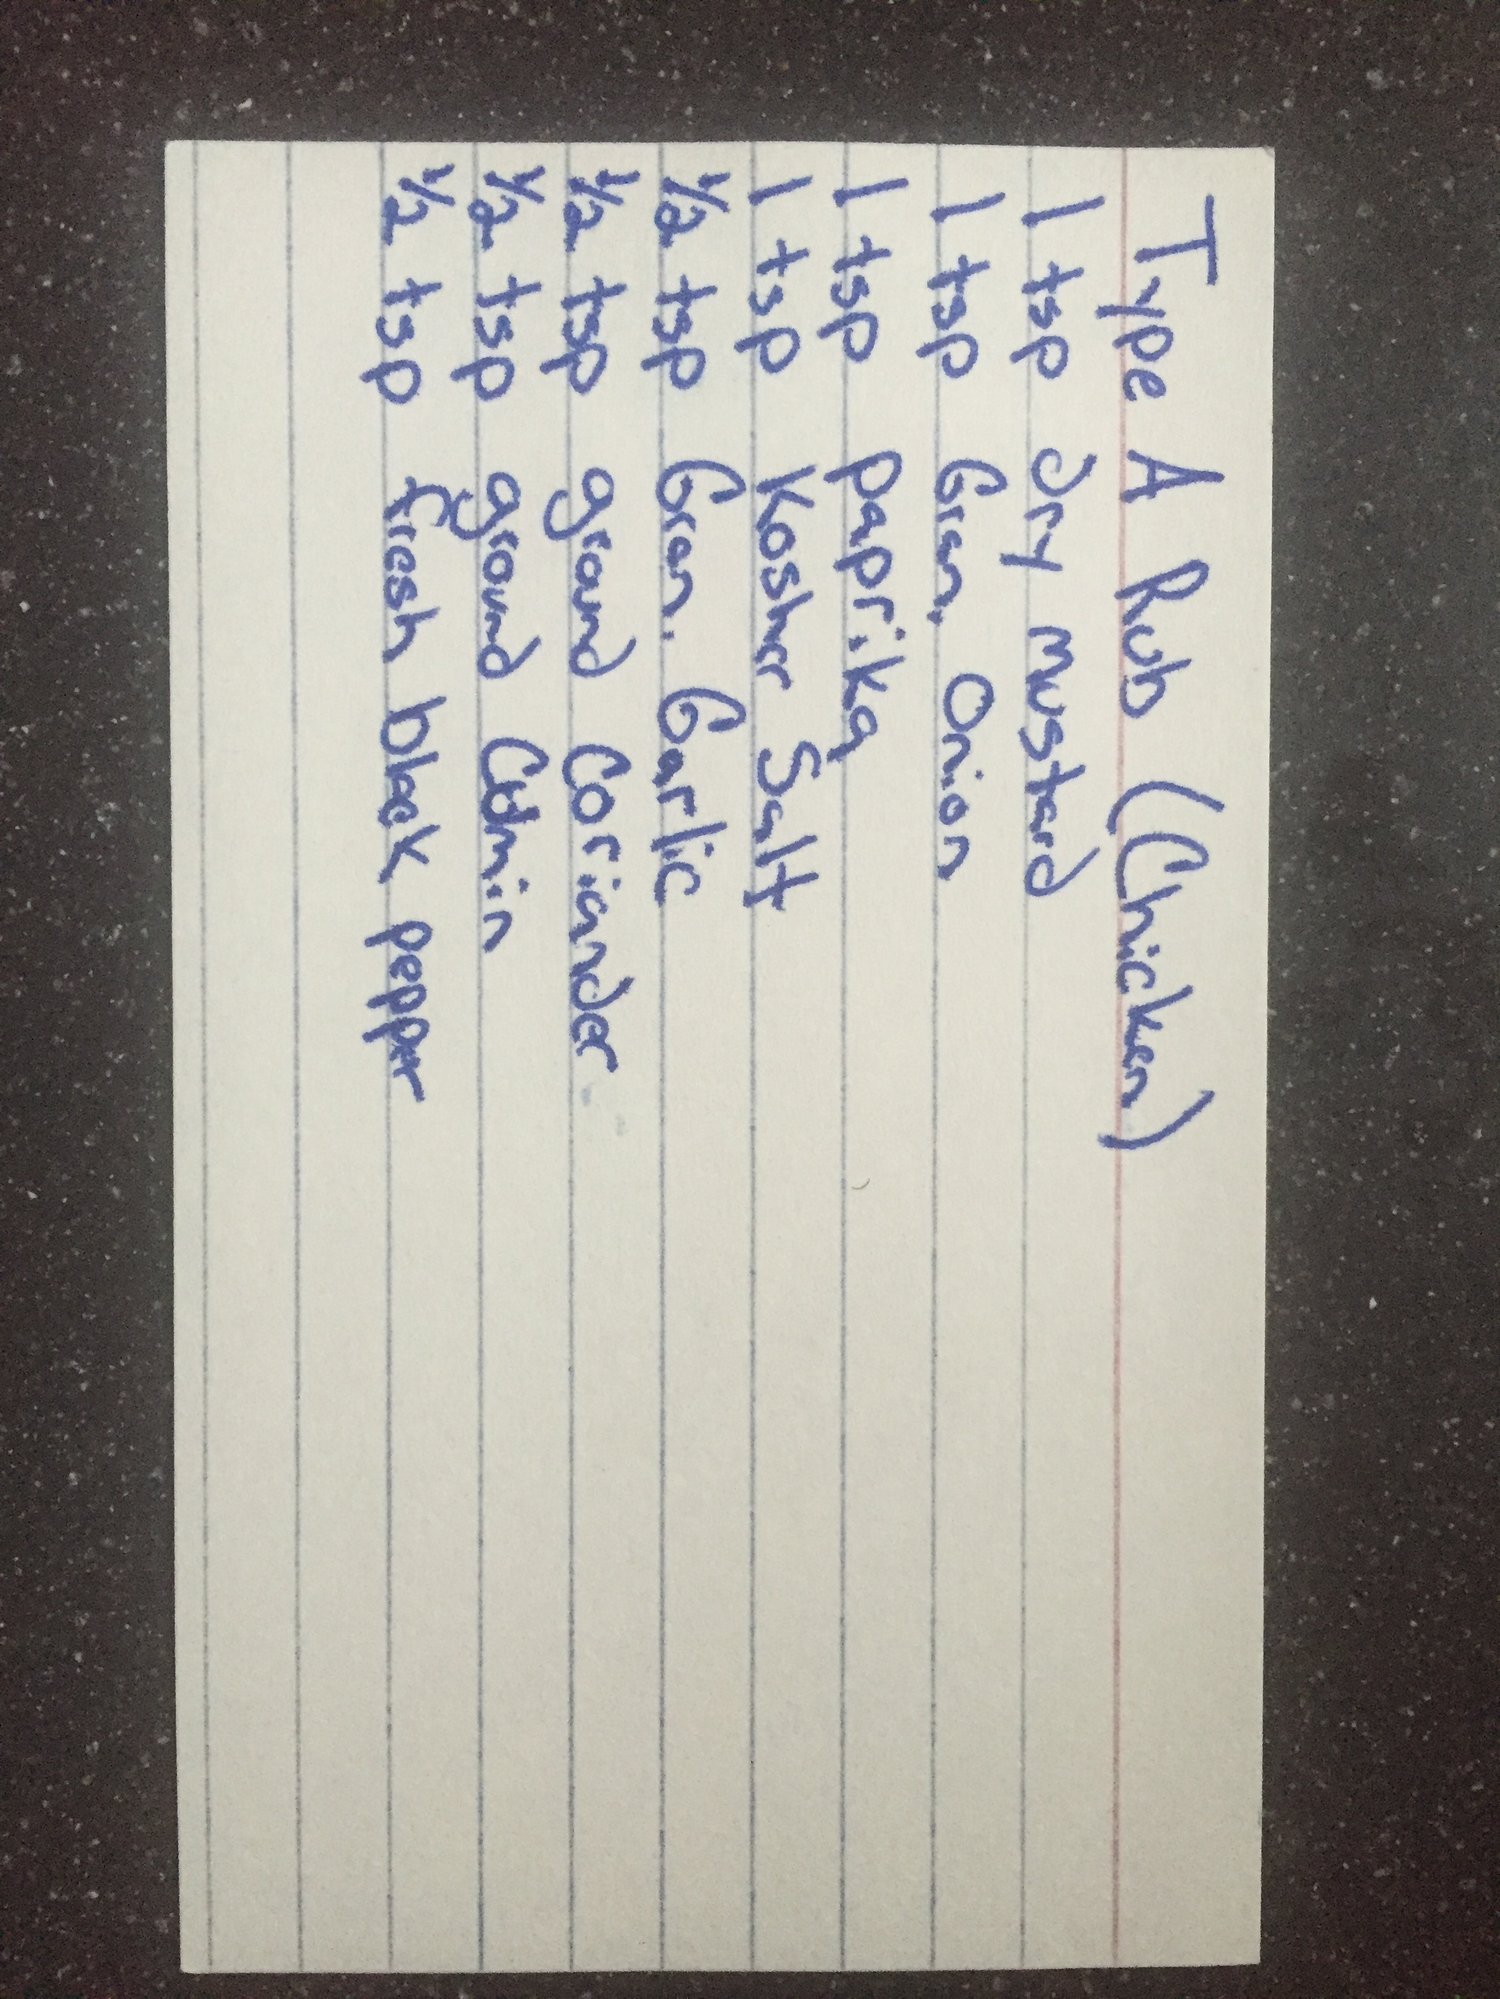 Type A Rub (Chicken)
1 tsp dry mustard
1 tsp Gran. Onion
1 tsp paprika
1 tsp Kosher Salt
1/2 tsp Gran. Garlic
1/2 tsp ground Coriander
1/2 tsp ground Cumin
1/2 tsp fresh black pepper